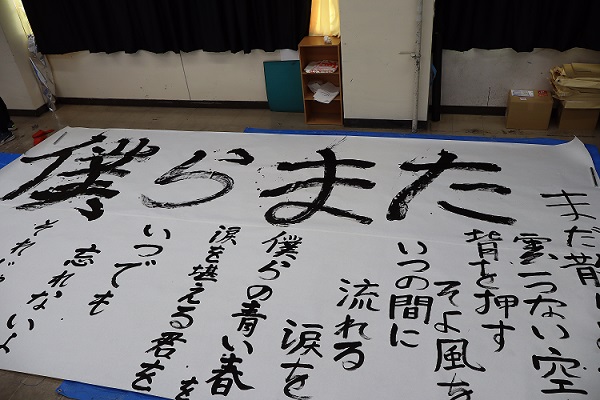 僕らまた
まだ
雲一つない空
背を押す
そよ風を
いつの間に
流れる
涙を
僕らの青い春
を
涙を堪える君を
いつでも
忘れないよ